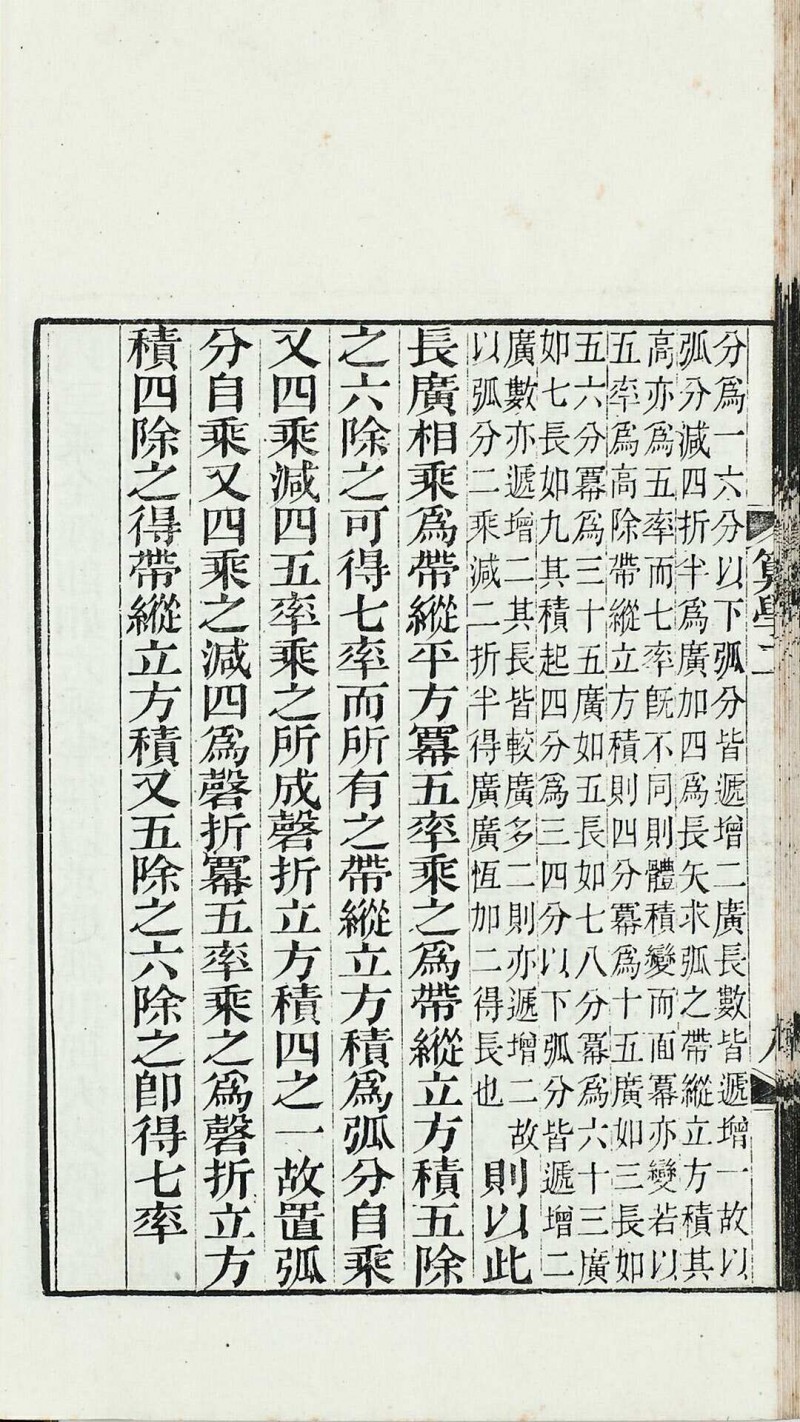 分爲一六分以下弧分皆遞增二廣長數皆遞增一故以
弧分減四折半爲廣加四爲長矢求弧之帶縱立方積其
高亦爲五率而七率旣不同則體積變而面冪亦變若以
五率爲高除帶縱立方積則四分冪爲十五廣如三長如
五六分冪爲三十五廣如五長如七八分冪爲六十三廣
如七長如九其積起四分爲三四分以下弧分皆遞增二
廣數亦遞增二其長皆較廣多二則亦遞增二故
以弧分二乘減二折半得廣廣恆加二得長也
則以此
長廣相乘爲帶縱平方冪五率乘之爲帶縱立方積五除
之六除之可得七率而所有之帶縱立方積爲弧分自乘
又四乘減四五率乘之所成磬折立方積四之一故置弧
分自乘又四乘之減四爲磬折冪五率乘之爲磬折立方
積四除之得帶縱立方積又五除之六除之卽得七率
算學二